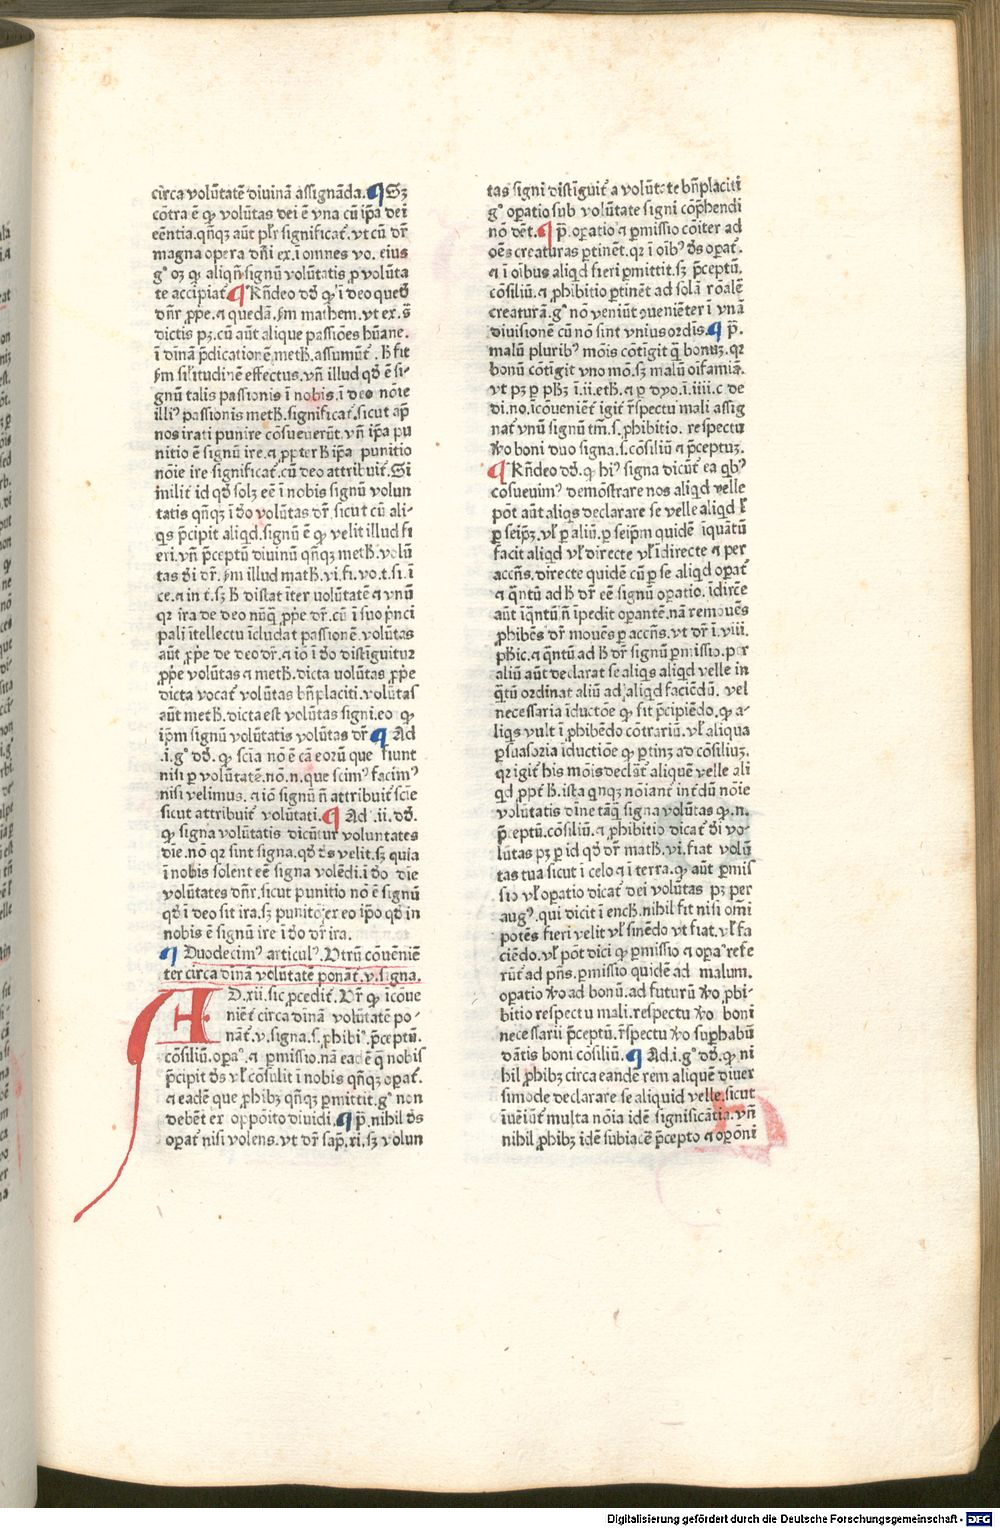 circa volūtatē divinā assignāda. ¶ Sꝫ
cōtra ē qꝫ volūtas dei ē vna cū ip̄a dei
eēntia. qn̄qꝫ aūt plr̄ significat̄. vt cū dr̄
magna opera dn̄i ex. i omnes vo. eius
gͦ oꝫ qꝫ aliqn̄ signū volūtatis ꝓ volūta
te accipiat̄ ¶ Rn̄deo dꝺ̄ qꝫ ī deo quedā
dn̄r ꝓpe. ⁊ quedā. ẜm mathem. vt ex. s̄
dictis pꝫ. cū aūt alique passiōes hūane.
ī dīnā p̄dicationē metħ. assumūt̄. ħ fit
ẜm sil̓itudinē effectus. vn̄ illud qꝺ̄ ē si-
gnū talis passionis ī nobis. ī deo nōīe
illiꝰ passionis metħ. significat̄. sicut ap̄
nos irati punire cōsueuerūt. vn̄ ip̄a pu
nitio ē signū ire. ⁊ ꝓpter ħ ip̄a punitio
nōīe ire significat̄. cū deo attribuit̄. Si
milit̄ id qꝺ̄ solꝫ eē ī nobis signū volun
tatis qn̄qꝫ ī ꝺ̄o volūtas dr̄. sicut cū ali-
qͥs p̄cipit aliqd. signū ē qꝫ velit illud fi
eri. vn̄ p̄ceptū divinū qn̄qꝫ metħ. volū
tas ꝺ̄i dr̄. ẜm illud matħ. vi. fi. vo. t. si. ī
ce. ⁊ in t. sꝫ ħ distat īter uolūtatē ⁊ vnū
qꝛ ira de deo nūqͣ ꝓpe dr̄. cū ī suo pͥnci
pali ītellectu īcludat passionē. volūtas
aūt ꝓpe de deo dr̄. ⁊ iō ī ꝺ̄o distiguitur
ꝓpe volūtas ⁊ metħ. dicta uolūtas ꝓpe
dicta vocat̄ volūtas bn̄placiti. volūtas
aūt metħ. dicta est volūtas signi. eo qꝫ
ip̄m signū volūtatis volūtas dr̄ ¶ Ad
.i. gͦ dꝺ̄. qꝫ scīa nō ē cā eorū que fiunt
nisi ꝑ volūtatē. nō. n. que scimꝰ facimꝰ
nisi velimus. ⁊ iō signū n̄ attribuit̄ scīe
sicut attribuit̄ volūtati. ¶ Ad .ii. dꝺ̄.
qꝫ signa volūtatis dicūtur voluntates
dīe. nō qꝛ sint signa. qꝺ̄ ꝺ̄s velit. sꝫ quia
ī nobis solent eē signa volēdi. ī ꝺ̄o dīe
volūtates dn̄r. sicut punitio nō ē signū
qꝺ̄ ī deo sit ira. sꝫ punitō ex eo ip̄o qꝺ̄ in
nobis ē signū ire ī ꝺ̄o dr̄ ira.
¶ Duodecimꝰ articulꝰ. Vtrū cōvēniē
ter circa dīnā volūtatē ponāt̄. v. signa.
AD .xii. sic ꝓcedit̄. Vr̄ qꝫ īcōue
niēt̄ circa dīnā volūtatē po-
nāt̄. v. signa. s. ꝓhibiͦ. p̄ceptū.
cōsiliū. oꝑaͦ. ⁊ ꝑmissio. nā eadē q̄ nobis
p̄cipit ꝺ̄s vl̓ cōsulit ī nobis qn̄qꝫ oꝑat̄.
⁊ eadē que ꝓhibꝫ qn̄qꝫ ꝑmittit. gͦ non
debēt ex oppōito dividi. ¶ p̄. nihil ꝺ̄s
oꝑat̄ nisi volens. vt dr̄ sap̄. xi. sꝫ volun
tas signi distiguit̄ a volūtate bn̄placiti
gͦ oꝑatio sub volūtate signi cōp̄hendi
nō dēt. ¶ p̄. oꝑatio ⁊ ꝑmissio cōiter ad
oēs creaturas ꝑtinēt. qꝛ ī oibꝰ ꝺ̄s oꝑat̄.
⁊ ī oībus aliqd fieri ꝑmittit. sꝫ p̄ceptū.
cōsiliū. ⁊ ꝓhibitio ꝑtinēt ad solā rōalē
creaturā. gͦ nō veniūt ꝯueniēter ī vnā
divisionē cū nō sint vnius ordīs. ¶ p̄.
malū pluribꝰ mōis cōtigit q̄ bonuꝫ. qꝛ
bonū cōtigit vno mō. sꝫ malū oīfariā.
vt pꝫ ꝑ pħꝫ ī .ii. etħ. ⁊ ꝑ dyo. ī .iiii. c de
di. no. īcōueniēt̄ igit̄ r̄spectu mali assig
nat̄ vnū signū tm̄. s. ꝓhibitio. respectu
ꝟo boni duo signa. s. cōsiliū ⁊ p̄ceptuꝫ.
¶ Rn̄deo dꝺ̄. qꝫ hiꝰ signa dicūt̄ ea qͥbꝰ
cōsuevimꝰ demōstrare nos aliqd velle
pōt aūt aliqͥs declarare se velle aliqd l̓
ꝑ seip̄ꝫ. vl̓ ꝑ aliū. ꝑ seip̄m quidē iquātū
facit aliqd vl̓ directe vl̓ īdirecte ⁊ per
accn̄s. directe quidē cū ꝑ se aliqd oꝑat̄
⁊ q̄ntū ad ħ dr̄ eē signū oꝑatio. īdirēe
aūt iq̄ntū n̄ īpedit oꝑantē. nā remouēs
ꝓhibēs dr̄ mouēs ꝑ accn̄s. vt dr̄ ī .viii.
pħic. ⁊ q̄ntū ad ħ dr̄ signū ꝑmissio. per
aliū aūt declarat se aliqͥs aliqd velle in
q̄tū ordinat aliū ad aliqd faciēdū. vel
necessaria īductōe qꝫ fit p̄cipiēdo. qꝫ a-
liqͥs vult ⁊ ꝓhibēdo cōtrariū. vl̓ aliqua
ꝑsuasoria īductiōe qꝫ ꝑtinꝫ ad cōsiliuꝫ.
qꝛ igit̄ his mōis declāt̄ aliquē velle ali
qd. ꝓpt̄ ħ. ista qͥnqꝫ noīant̄ int̄dū nōīe
voluītatis dīne tāqͣ signa volūtas qꝫ. n.
p̄ceptū. cōsiliū. ⁊ ꝓhibitio dicat̄ ꝺ̄i vo-
lūtas pꝫ ꝑ id qꝺ̄ dr̄ matħ. vi. fiat volū
tas tua sicut ī celo ⁊ ī terra. qꝫ aūt ꝑmis
sio vl̓ oꝑatio dicat̄ dei volūtas pꝫ per
augꝰ. qui dicit ī encħ. nihil fit nisi om̄i
potēs fieri velit vl̓ sinēdo vt fiat. vl̓ fa
ciēdo. vl̓ pōt dici qꝫ ꝑmissio ⁊ oꝑaͦ refe
rūt̄ ad pn̄s. ꝑmissio quidē ad malum.
oꝑatio ꝟo ad bonū. ad futurū ꝟo ꝓhi-
bitio respectu mali. respectu ꝟo boni
necessarii p̄ceptū. r̄spectu ꝟo suꝑhabū
dātis boni cōsiliū. ¶ Ad .i. gͦ dꝺ̄. qꝫ ni
hil ꝓhibꝫ circa eandē rem aliquē diuer
simode declarare se aliquid velle. sicut
īueīūt̄ multa nōīa idē significātia. vn̄
nihil ꝓhibꝫ idē subiacē p̄cepto ⁊ oꝑōni
Digitalisierung gefördert durch die Deutsche Forschungsgemeinschaft - DFG